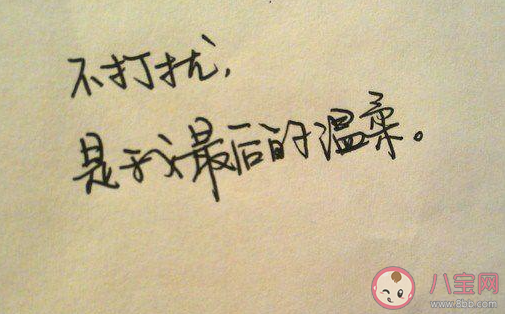 不打扰,
是我最后的温柔。
八宝网
www.8bb.com